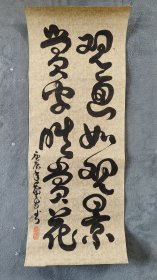 观画如观景
赏字胜赏花
庚辰年